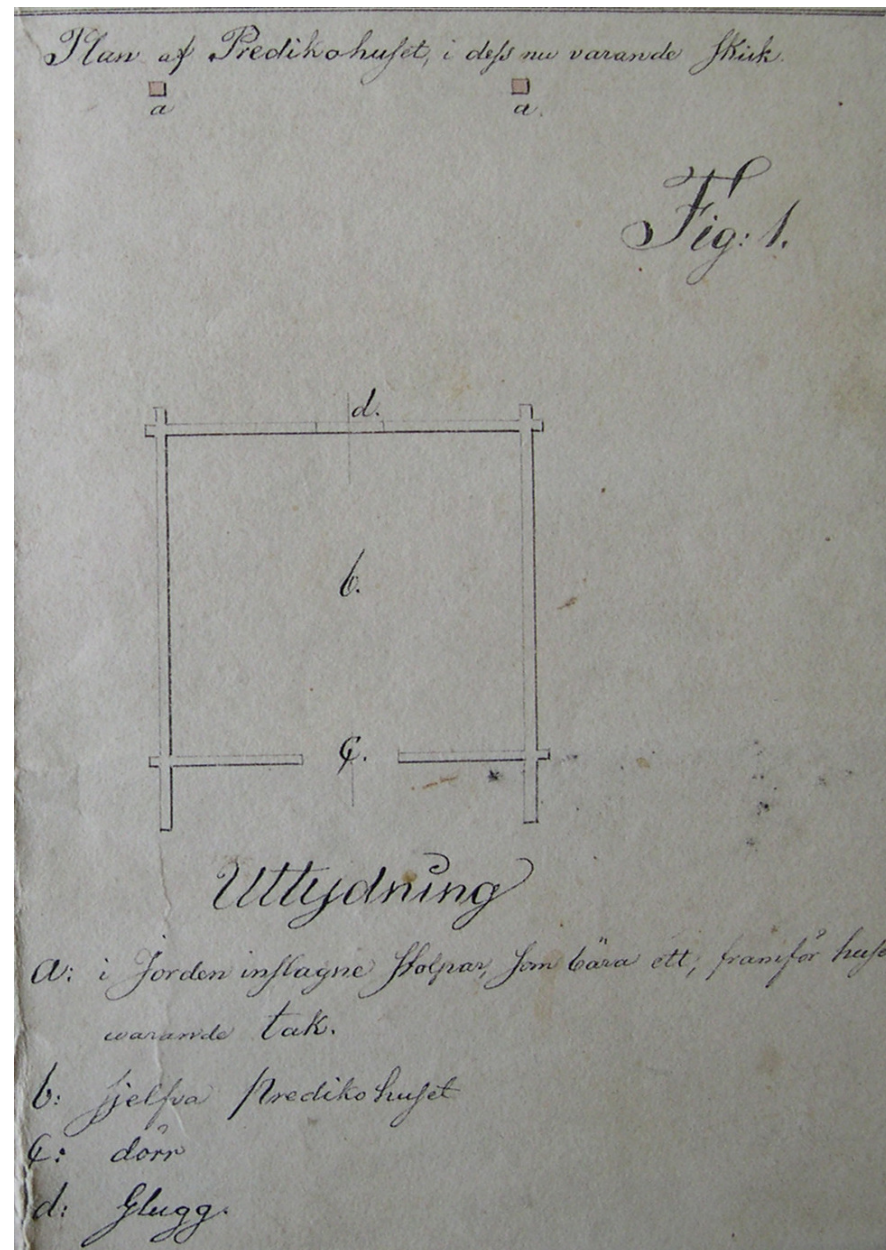 Plan af Predikohuset, i dess nu varande skick.
a a.
Fig: 1.
d.
b.
c.
Uttydning
a: i Jorden inslagne stolpar, som bära ett, framför huse
warande tak.
b: sjelfva Predikohuset
c: dörr
d: Glugg.